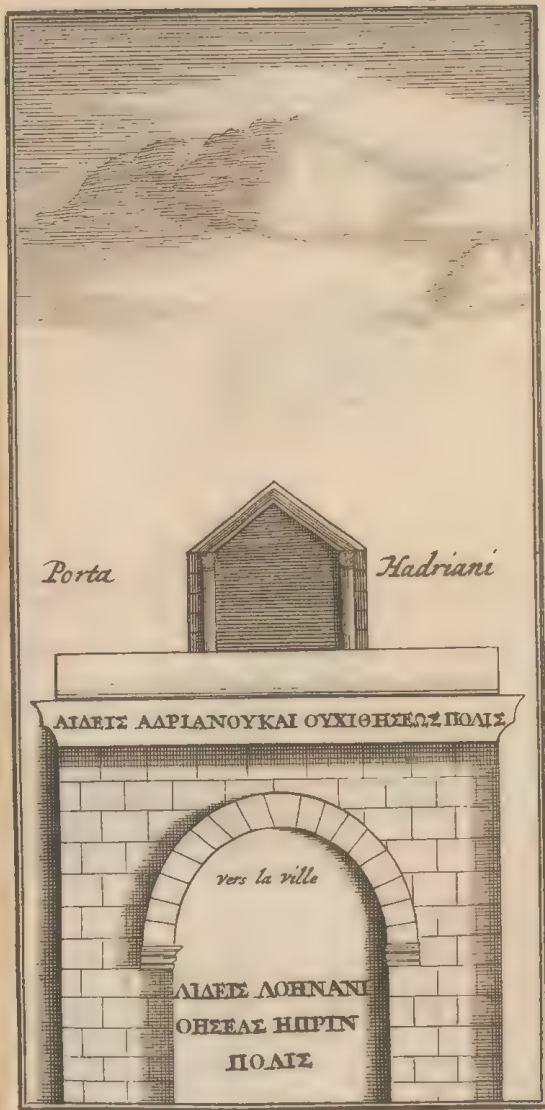 Porta Hadriani
ΑΙΔΕΙΣ ΑΔΡΙΑΝΟΥ ΚΑΙ ΟΥΧΙΘΗΣΕΩΣ ΠΟΛΙΣ
vers la ville
ΑΙΔΕΙΣ ΛΟΗΝΑΝΙ
ΟΗΣΕΑΣ ΗΠΡΙΝ
ΠΟΛΙΣ